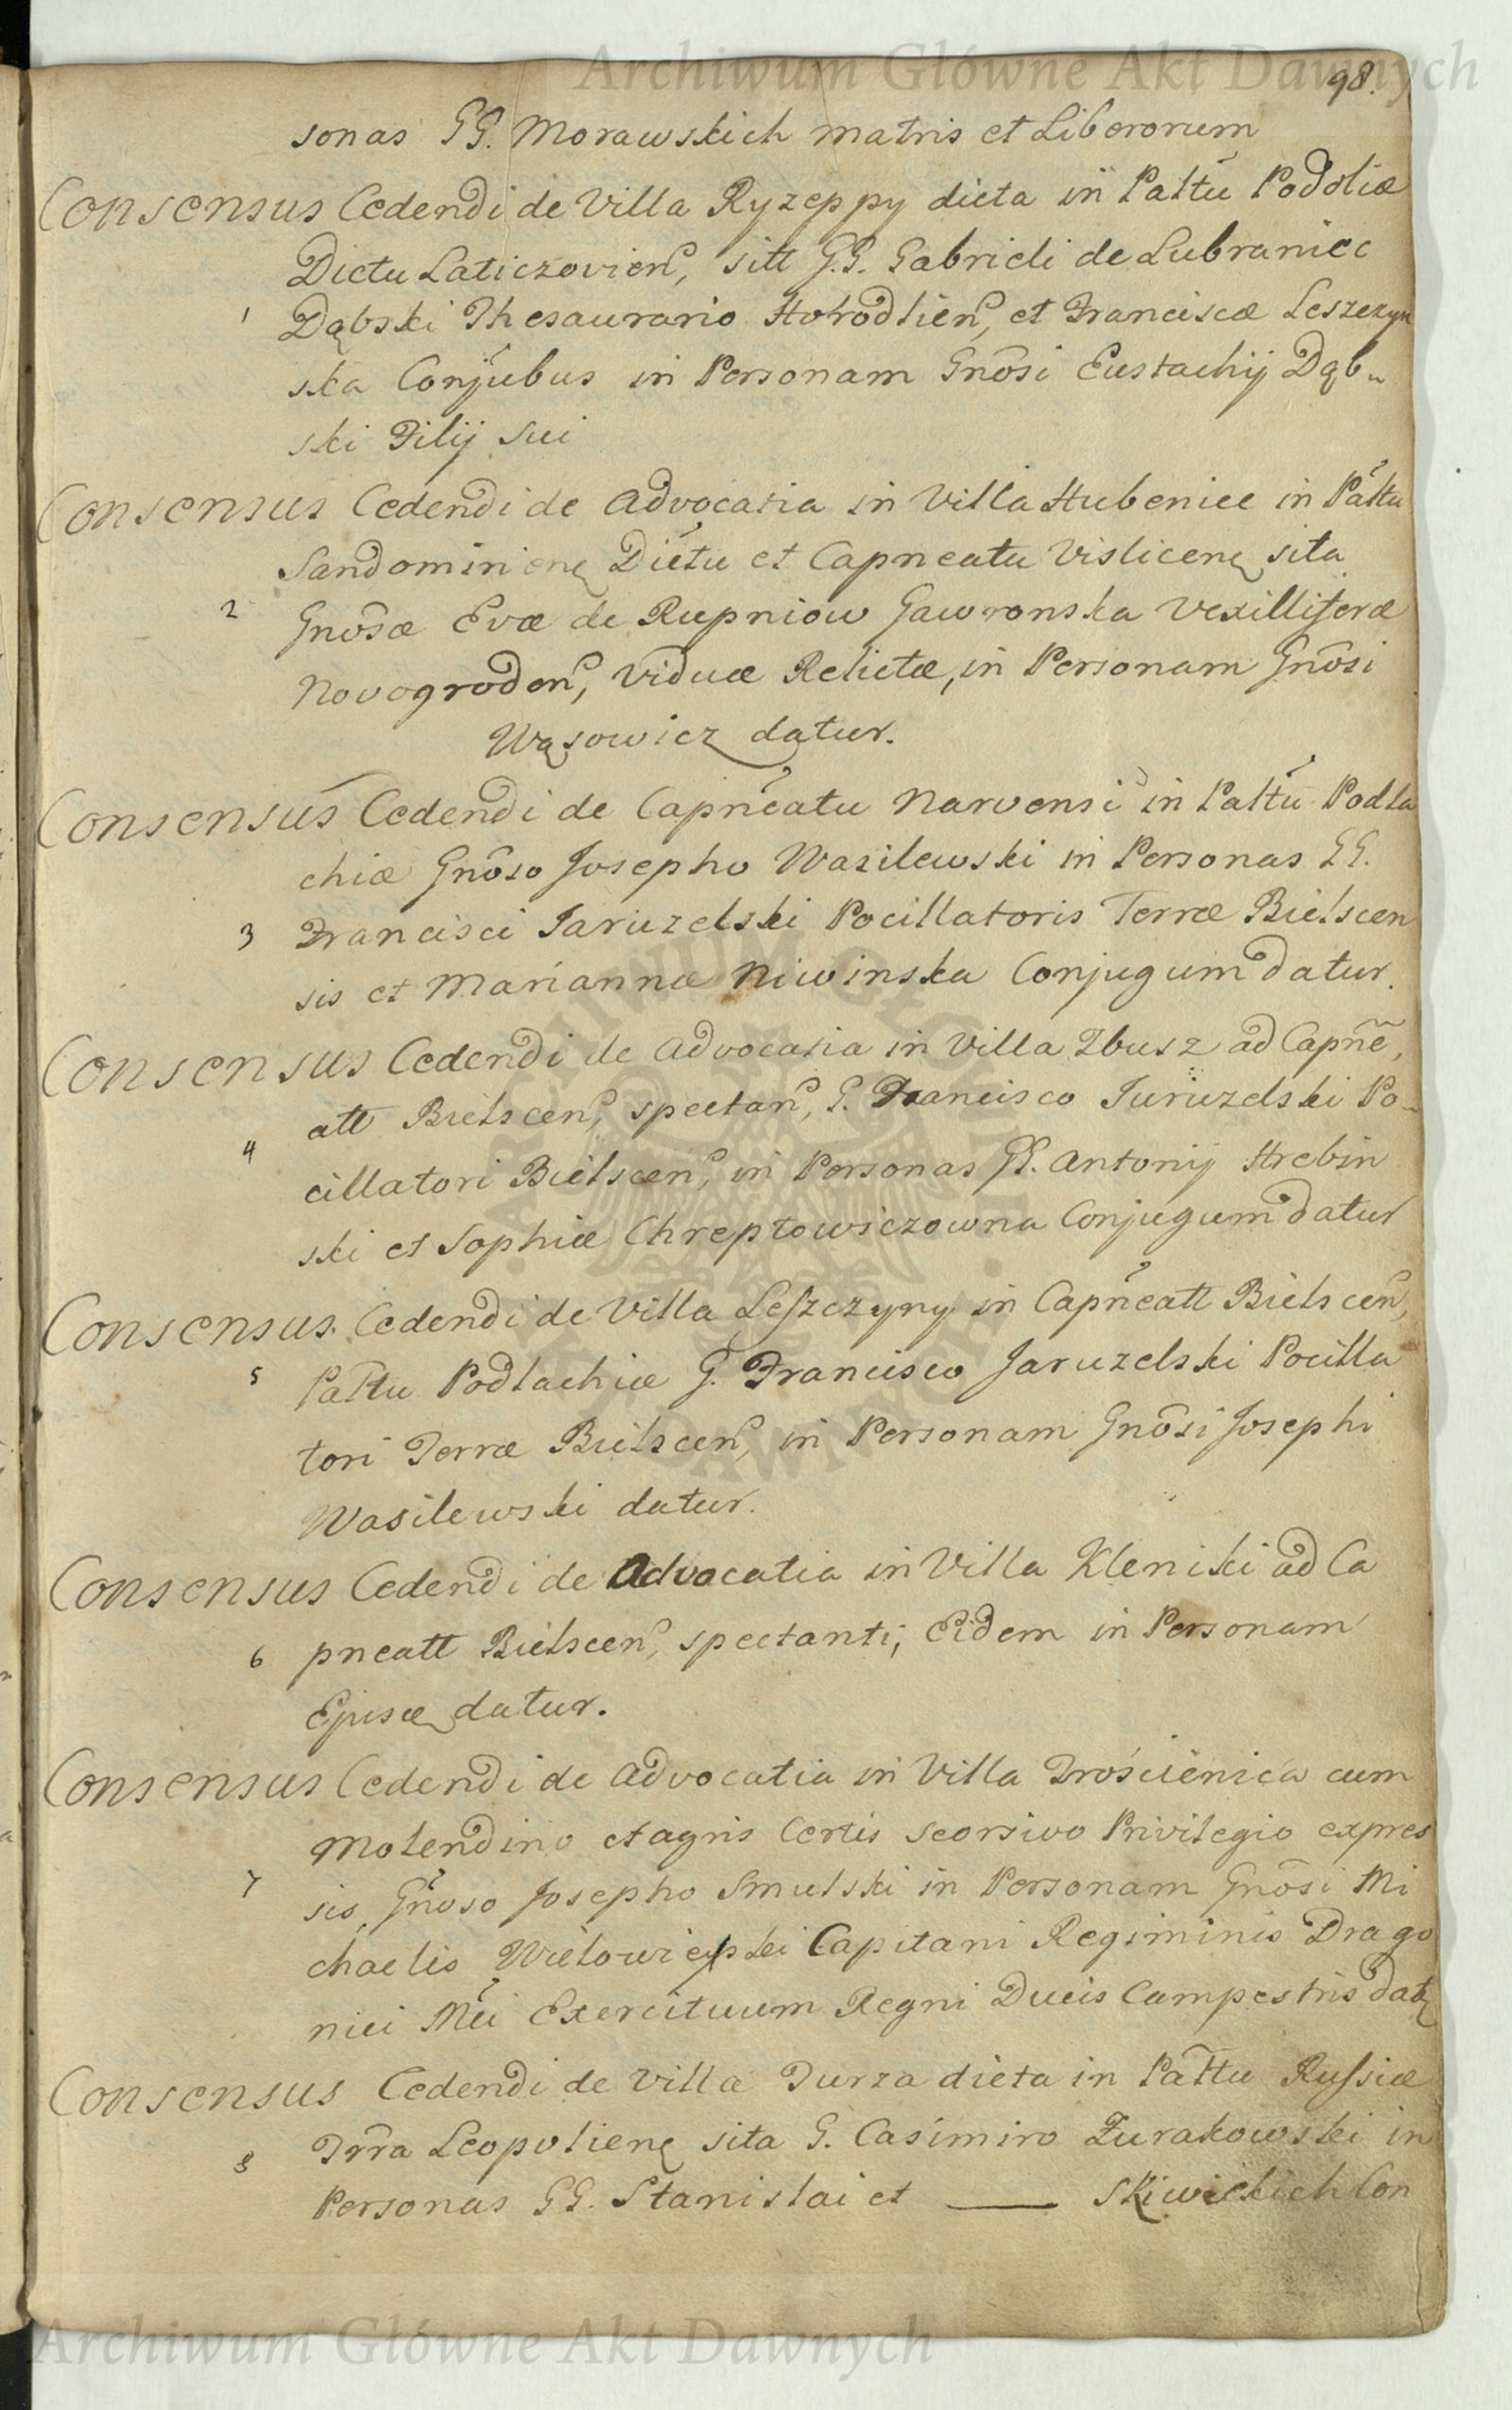 Archiwum Główne Akt Dawnych
98.
sonas GG. Morawskich matris et Liberorum
Consensus Cedendi de Villa Ryzeppy dicta in Palttũ Podoliæ
Dictu Laticzovien, sitt G.G. Gabrieli de Lubraniec
1 Dąbski Thesaurario Horodlien, et Franciscæ Leszczyn
ska Conjubus in Personam Gnosi Eustachij Dąb-
ski Filij Sui
Consensus Cedendi de Advocatia in Villa Hubenice in Palttu
Sandominienę Dictu et Capneatu Vislicenę sita
2 Gnosæ Evæ de Rupniow Gawronska Vexilliferæ
Novogroden, Viduæ Relictæ, in Personam Gnosi
Wąsowicz datur.
Consensus Cedendi de Capneatu Narvensi in Palttu Podla
chiæ Gnoso Josepho Wasilewski in Personas GG.
3 Francisci Jaruzelski Pocillatoris Terræ Bielscen
sis et Mariannæ Niwinska Conjugum datur.
Consensus Cedendi de Advocatia in Villa Zbusz ad Capne,
att Bielscen, spectan, G. Francisco Juruzelski Po-
4
cillatori Bielscen, in Personas GG. Antonij Hrebin
ski et Sophiæ Chreptowiczowna Conjugum datur
Consensus Cedendi de Villa Leszczyny in Capneatt Bielscen,
5 Palttu Podlachiæ G. Francisco Jaruzelski Pocilla
tori Terræ Bielscen, in Personam Gnosi Josephi
Wasilewski datur.
Consensus Cedendi de Advocatia in Villa Kleniki ad Ca
6 pneatt Bielscen, spectanti, Eidem in Personam
Ejusdę datur.
Consensus Cedendi de Advocatia in Villa Trościenica cum
Molendino et agris Certis seorsivo Privilegio expres
7 sis Gnoso Josepho Smulski in Personam Gnosi Mi
chaelis Wielowieyski Capitani Regiminis Drago
nici Mei Exercituum Regni Ducis Campestris datę
Consensus Cedendi de Villa Turza dicta in Palttu Russiæ
8 Trra Leopolienę sita G. Casimiro Zurakowski in
Personas GG. Stanislai et —— Skiwickich Con
Archiwum Główne Akt Dawnych